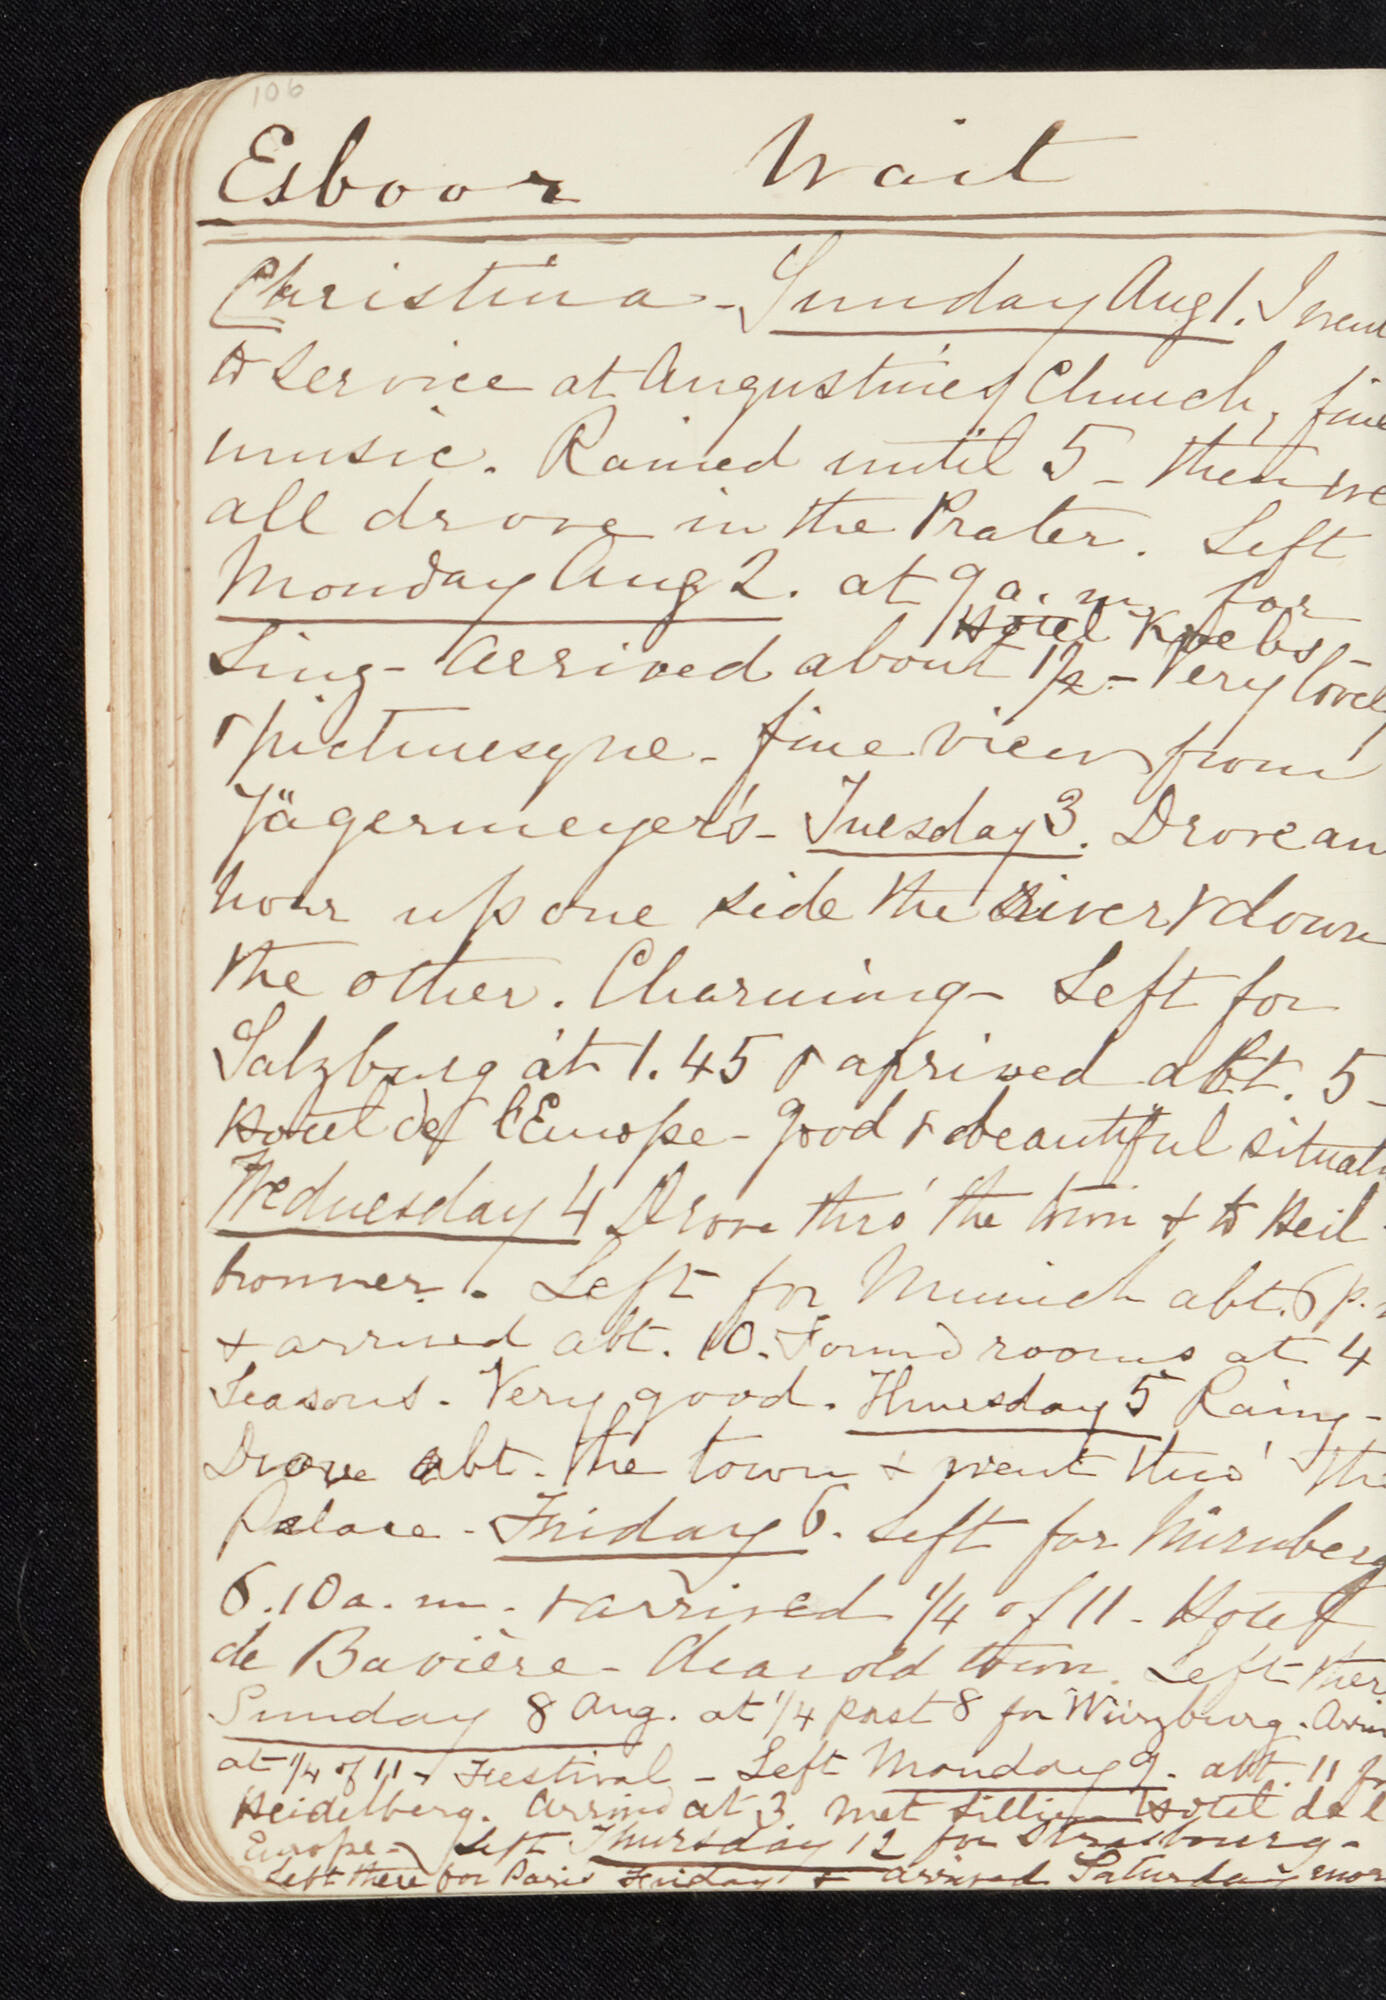 106
Esboor Wait
Christina - Sunday Aug 1. I went
to service at Augustine Church, fine
music. Rained until 5 - then we
all drove in the Prater. Left
Monday Aug 2. at 9 a.m. for
Hotel Krebs -
Linz - Arrived about 1½ - Very lovely
& picturesque - fine view from
Jägermeyer's - Tuesday 3. Drove an
hour up one side the river & down
the other. Charming - Left for
Salzburg at 1.45 & arrived abt. 5 -
Hotel de l'Europe - good & beautiful situati
Wednesday 4 Drove thro' the town & to Heil
bronner. Left for Munich abt. 6 p.
& arrived abt. 10. Found rooms at 4
Seasons. Very good. Thursday 5 Rainy -
Drove abt. the town & went thro' the
Palace - Friday 6. Left for Nürnberg
6.10 a.m. & arrived ¼ of 11 - Hotel
de Bavière - dear old town. Left ther
Sunday 8 Aug. at ¼ past 8 for Würzburg. Arriv
at ¼ of 11 - Festival - Left Monday 9. abt. 11 fo
Heidelberg. Arrived at 3 met Hotel de l
Europe - Left Thursday 12 for Strasbourg -
Left there for Paris Friday & arrived Saturday mor